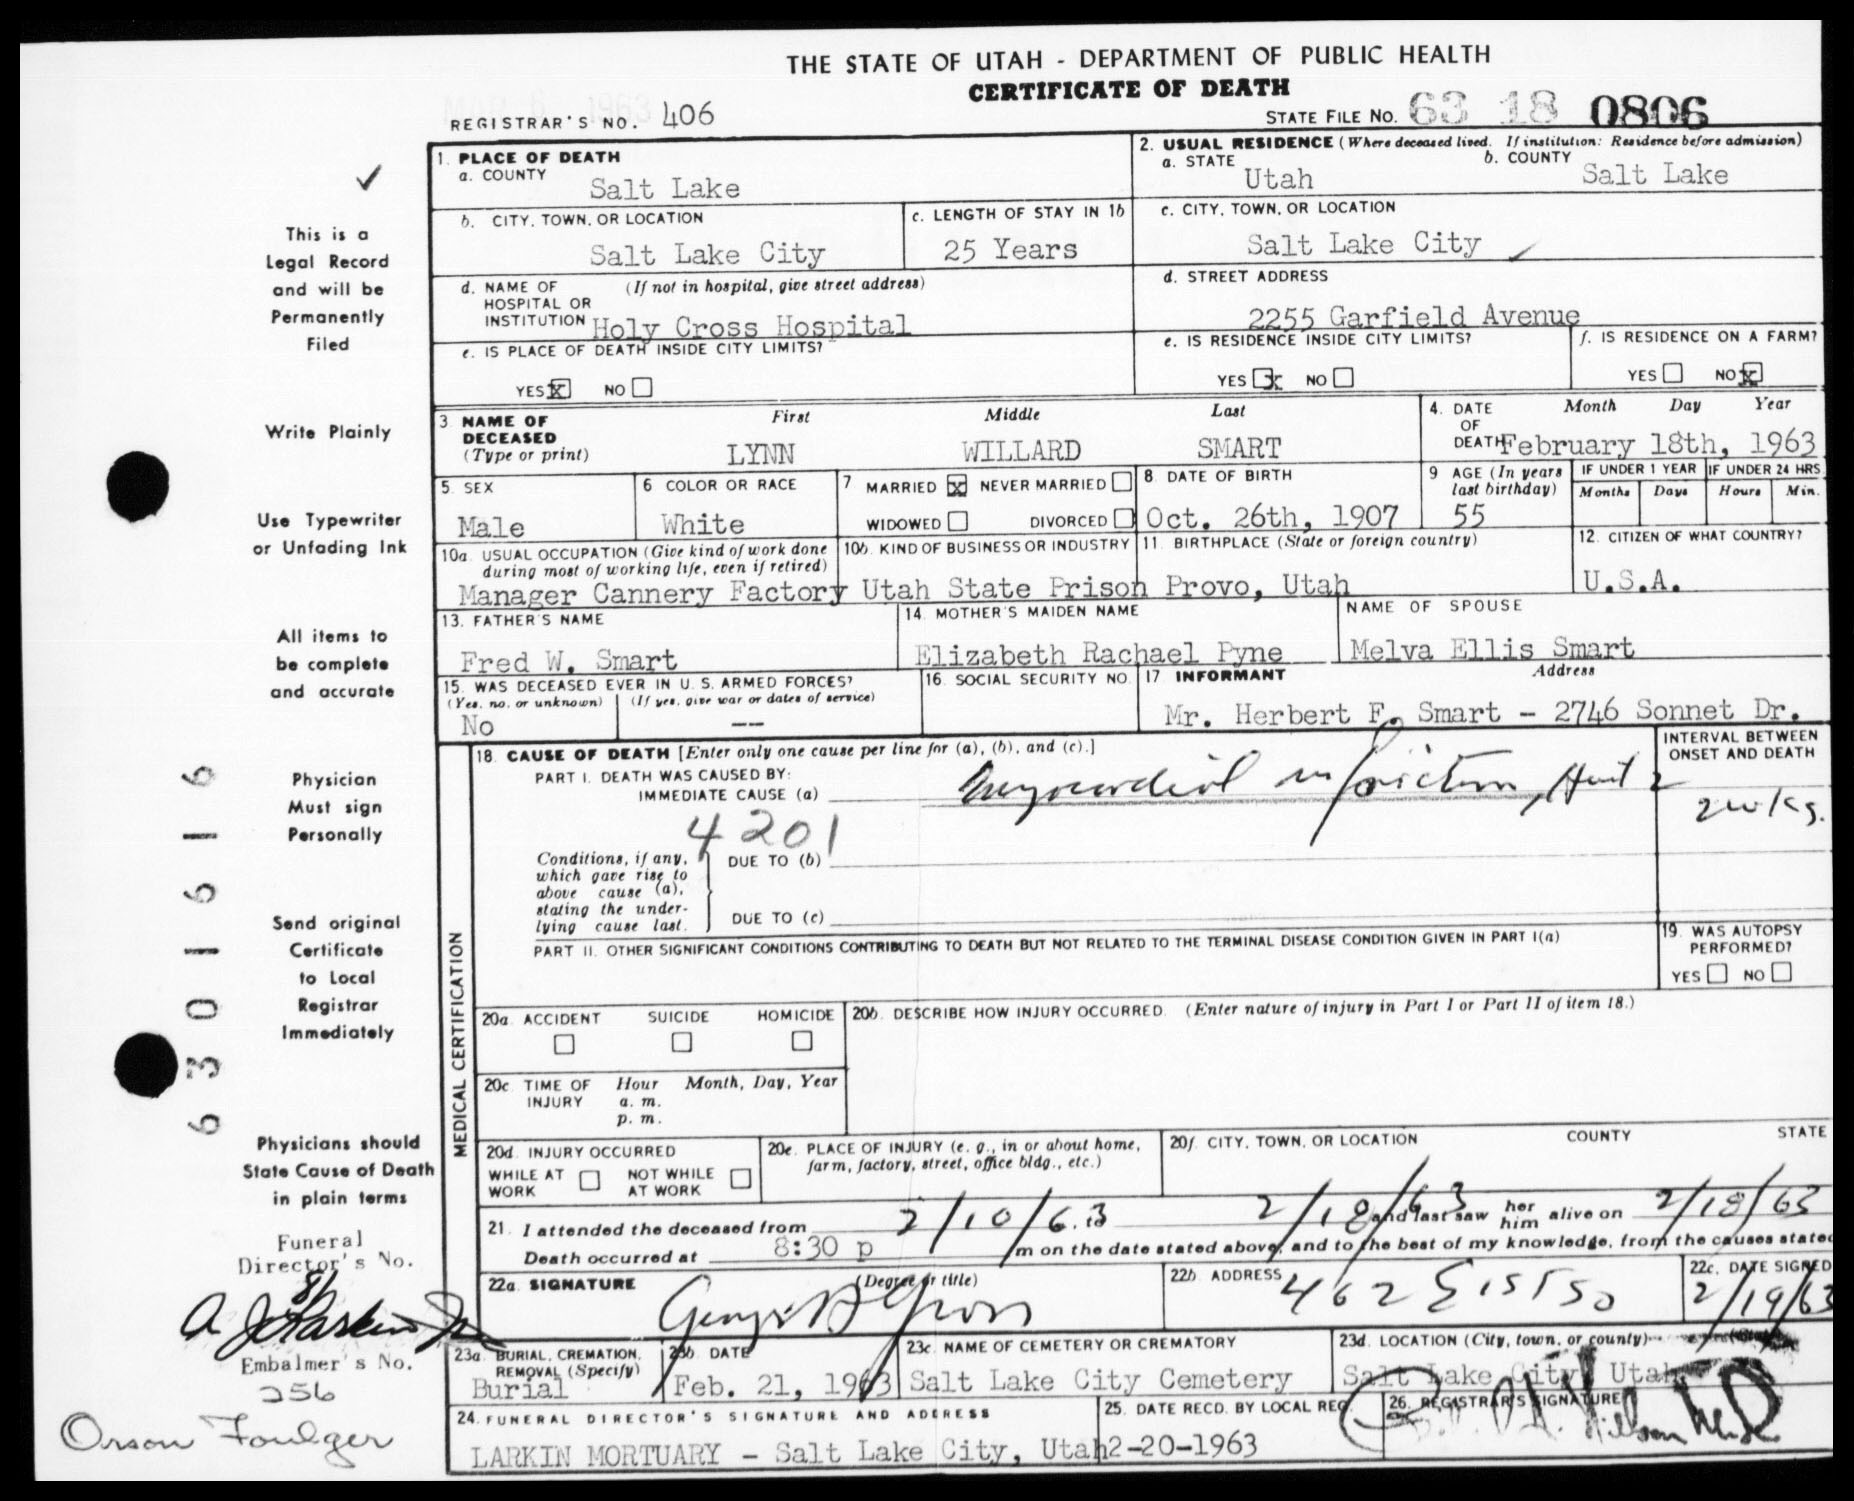 THE STATE OF UTAH - DEPARTMENT OF PUBLIC HEALTH
CERTIFICATE OF DEATH
REGISTRAR'S NO. 406
STATE FILE NO. 63 18 0806
1. PLACE OF DEATH
a. COUNTY
Salt Lake
2. USUAL RESIDENCE (Where deceased lived. If institution: Residence before admission)
a. STATE
Utah
b. COUNTY
Salt Lake
b. CITY, TOWN, OR LOCATION
Salt Lake City
c. LENGTH OF STAY IN 1b
25 Years
c. CITY, TOWN, OR LOCATION
Salt Lake City
d. NAME OF (If not in hospital, give street address)
HOSPITAL OR
INSTITUTION Holy Cross Hospital
d. STREET ADDRESS
2255 Garfield Avenue
e. IS PLACE OF DEATH INSIDE CITY LIMITS?
YES x NO
e. IS RESIDENCE INSIDE CITY LIMITS?
YES x NO
f. IS RESIDENCE ON A FARM?
YES NO x
3. NAME OF DECEASED
(Type or print)
First Middle Last
LYNN WILLARD SMART
4. DATE OF DEATH
Month Day Year
February 18th, 1963
5. SEX
Male
6 COLOR OR RACE
White
7 MARRIED x NEVER MARRIED
WIDOWED DIVORCED
8. DATE OF BIRTH
Oct. 26th, 1907
9 AGE (In years last birthday)
55
IF UNDER 1 YEAR
Months Days
IF UNDER 24 HRS.
Hours Min.
10a. USUAL OCCUPATION (Give kind of work done
during most of working life, even if retired)
Manager Cannery Factory
10b. KIND OF BUSINESS OR INDUSTRY
Utah State Prison
11. BIRTHPLACE (State or foreign country)
Provo, Utah
12. CITIZEN OF WHAT COUNTRY?
U.S.A.
13. FATHER'S NAME
Fred W. Smart
14. MOTHER'S MAIDEN NAME
Elizabeth Rachael Pyne
NAME OF SPOUSE
Melva Ellis Smart
15. WAS DECEASED EVER IN U. S. ARMED FORCES?
(Yes, no, or unknown) (If yes, give war or dates of service)
No --
16. SOCIAL SECURITY NO.
17 INFORMANT Address
Mr. Herbert F. Smart - 2746 Sonnet Dr.
18. CAUSE OF DEATH [Enter only one cause per line for (a), (b), and (c).]
PART I. DEATH WAS CAUSED BY:
IMMEDIATE CAUSE (a)
INTERVAL BETWEEN
ONSET AND DEATH
2 wks.
4201
Conditions, if any,
which gave rise to
above cause (a),
stating the under-
lying cause last.
DUE TO (b)
DUE TO (c)
PART II. OTHER SIGNIFICANT CONDITIONS CONTRIBUTING TO DEATH BUT NOT RELATED TO THE TERMINAL DISEASE CONDITION GIVEN IN PART I(a)
19. WAS AUTOPSY
PERFORMED?
YES NO
MEDICAL CERTIFICATION
20a. ACCIDENT SUICIDE HOMICIDE
20b. DESCRIBE HOW INJURY OCCURRED. (Enter nature of injury in Part I or Part II of item 18.)
20c. TIME OF INJURY
Hour Month, Day, Year
a. m.
p. m.
20d. INJURY OCCURRED
WHILE AT WORK
NOT WHILE AT WORK
20e. PLACE OF INJURY (e. g., in or about home,
farm, factory, street, office bldg., etc.)
20f. CITY, TOWN, OR LOCATION COUNTY STATE
21. I attended the deceased from 2/10/63 to 2/18/63 and last saw her him alive on 2/18/63
Death occurred at 8:30 p m on the date stated above, and to the best of my knowledge, from the causes stated
22a. SIGNATURE (Degree or title)
22b. ADDRESS
22c. DATE SIGNED
2/19/63
23a. BURIAL, CREMATION,
REMOVAL (Specify)
Burial
23b. DATE
Feb. 21, 1963
23c. NAME OF CEMETERY OR CREMATORY
Salt Lake City Cemetery
23d. LOCATION (City, town, or county)
Salt Lake City Utah
24. FUNERAL DIRECTOR'S SIGNATURE AND ADDRESS
LARKIN MORTUARY - Salt Lake City, Utah
25. DATE RECD. BY LOCAL REG.
2-20-1963
26. REGISTRAR'S SIGNATURE
This is a
Legal Record
and will be
Permanently
Filed
Write Plainly
Use Typewriter
or Unfading Ink
All items to
be complete
and accurate
Physician
Must sign
Personally
Send original
Certificate
to Local
Registrar
Immediately
Physicians should
State Cause of Death
in plain terms
Funeral
Director's No.
81
Embalmer's No.
256
Orson Foulger